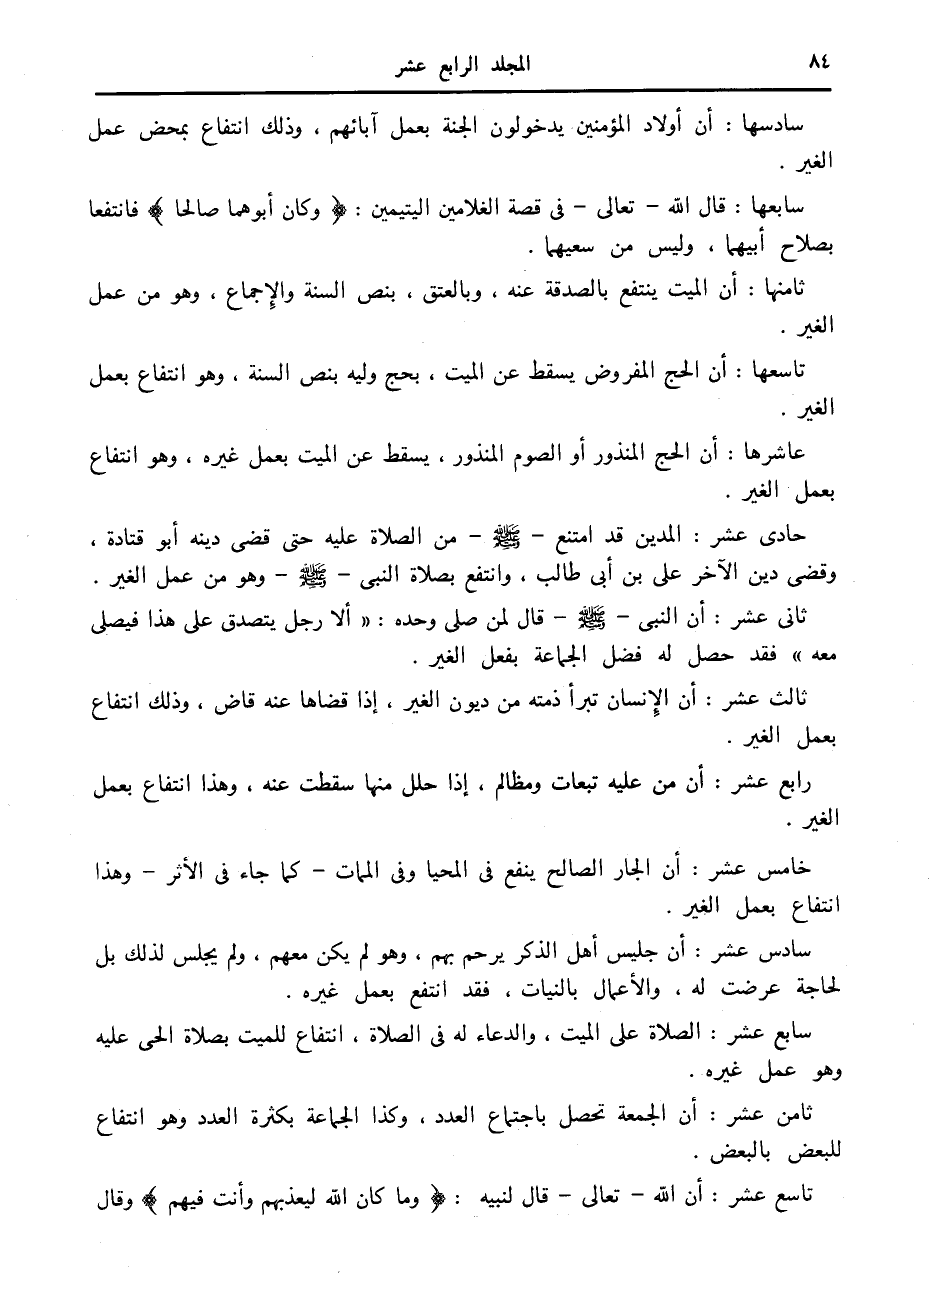 ٨٤
المجلد الرابع عشر
سادسها : أن أولاد المؤمنين يدخولون الجنة بعمل آبائهم ، وذلك انتفاع بمحض عمل
الغير .
سابعها : قال الله – تعالى – فى قصة الغلامين اليتيمين : ﴿ وكان أبوهما صالحا ﴾ فانتفعا
بصلاح أبيهما ، وليس من سعيهما .
ثامنها : أن الميت ينتفع بالصدقة عنه ، وبالعتق ، بنص السنة والإجماع ، وهو من عمل
الغير .
تاسعها : أن الحج المفروض يسقط عن الميت ، بحج وليه بنص السنة ، وهو انتفاع بعمل
الغير .
عاشرها : أن الحج المنذور أو الصوم المنذور ، يسقط عن الميت بعمل غيره ، وهو انتفاع
بعمل الغير .
حادى عشر : المدين قد امتنع – ﷺ – من الصلاة عليه حتى قضى دينه أبو قتادة ،
وقضى دين الآخر على بن أبى طالب ، وانتفع بصلاة النبى – ﷺ – وهو من عمل الغير .
ثانى عشر : أن النبى – ﷺ – قال لمن صلى وحده : « ألا رجل يتصدق على هذا فيصلى
معه » فقد حصل له فضل الجماعة بفعل الغير .
ثالث عشر : أن الإنسان تبرأ ذمته من ديون الغير ، إذا قضاها عنه قاض ، وذلك انتفاع
بعمل الغير .
رابع عشر : أن من عليه تبعات ومظالم ، إذا حلل منها سقطت عنه ، وهذا انتفاع بعمل
الغير .
خامس عشر : أن الجار الصالح ينفع فى المحيا وفى الممات – كما جاء فى الأثر – وهذا
انتفاع بعمل الغير .
سادس عشر : أن جليس أهل الذكر يرحم بهم ، وهو لم يكن معهم ، ولم يجلس لذلك بل
لحاجة عرضت له ، والأعمال بالنيات ، فقد انتفع بعمل غيره .
سابع عشر : الصلاة على الميت ، والدعاء له فى الصلاة ، انتفاع للميت بصلاة الحى عليه
وهو عمل غيره .
ثامن عشر : أن الجمعة تحصل باجتماع العدد ، وكذا الجماعة بكثرة العدد وهو انتفاع
للبعض بالبعض .
تاسع عشر : أن الله – تعالى – قال لنبيه : ﴿ وما كان الله ليعذبهم وأنت فيهم ﴾ وقال